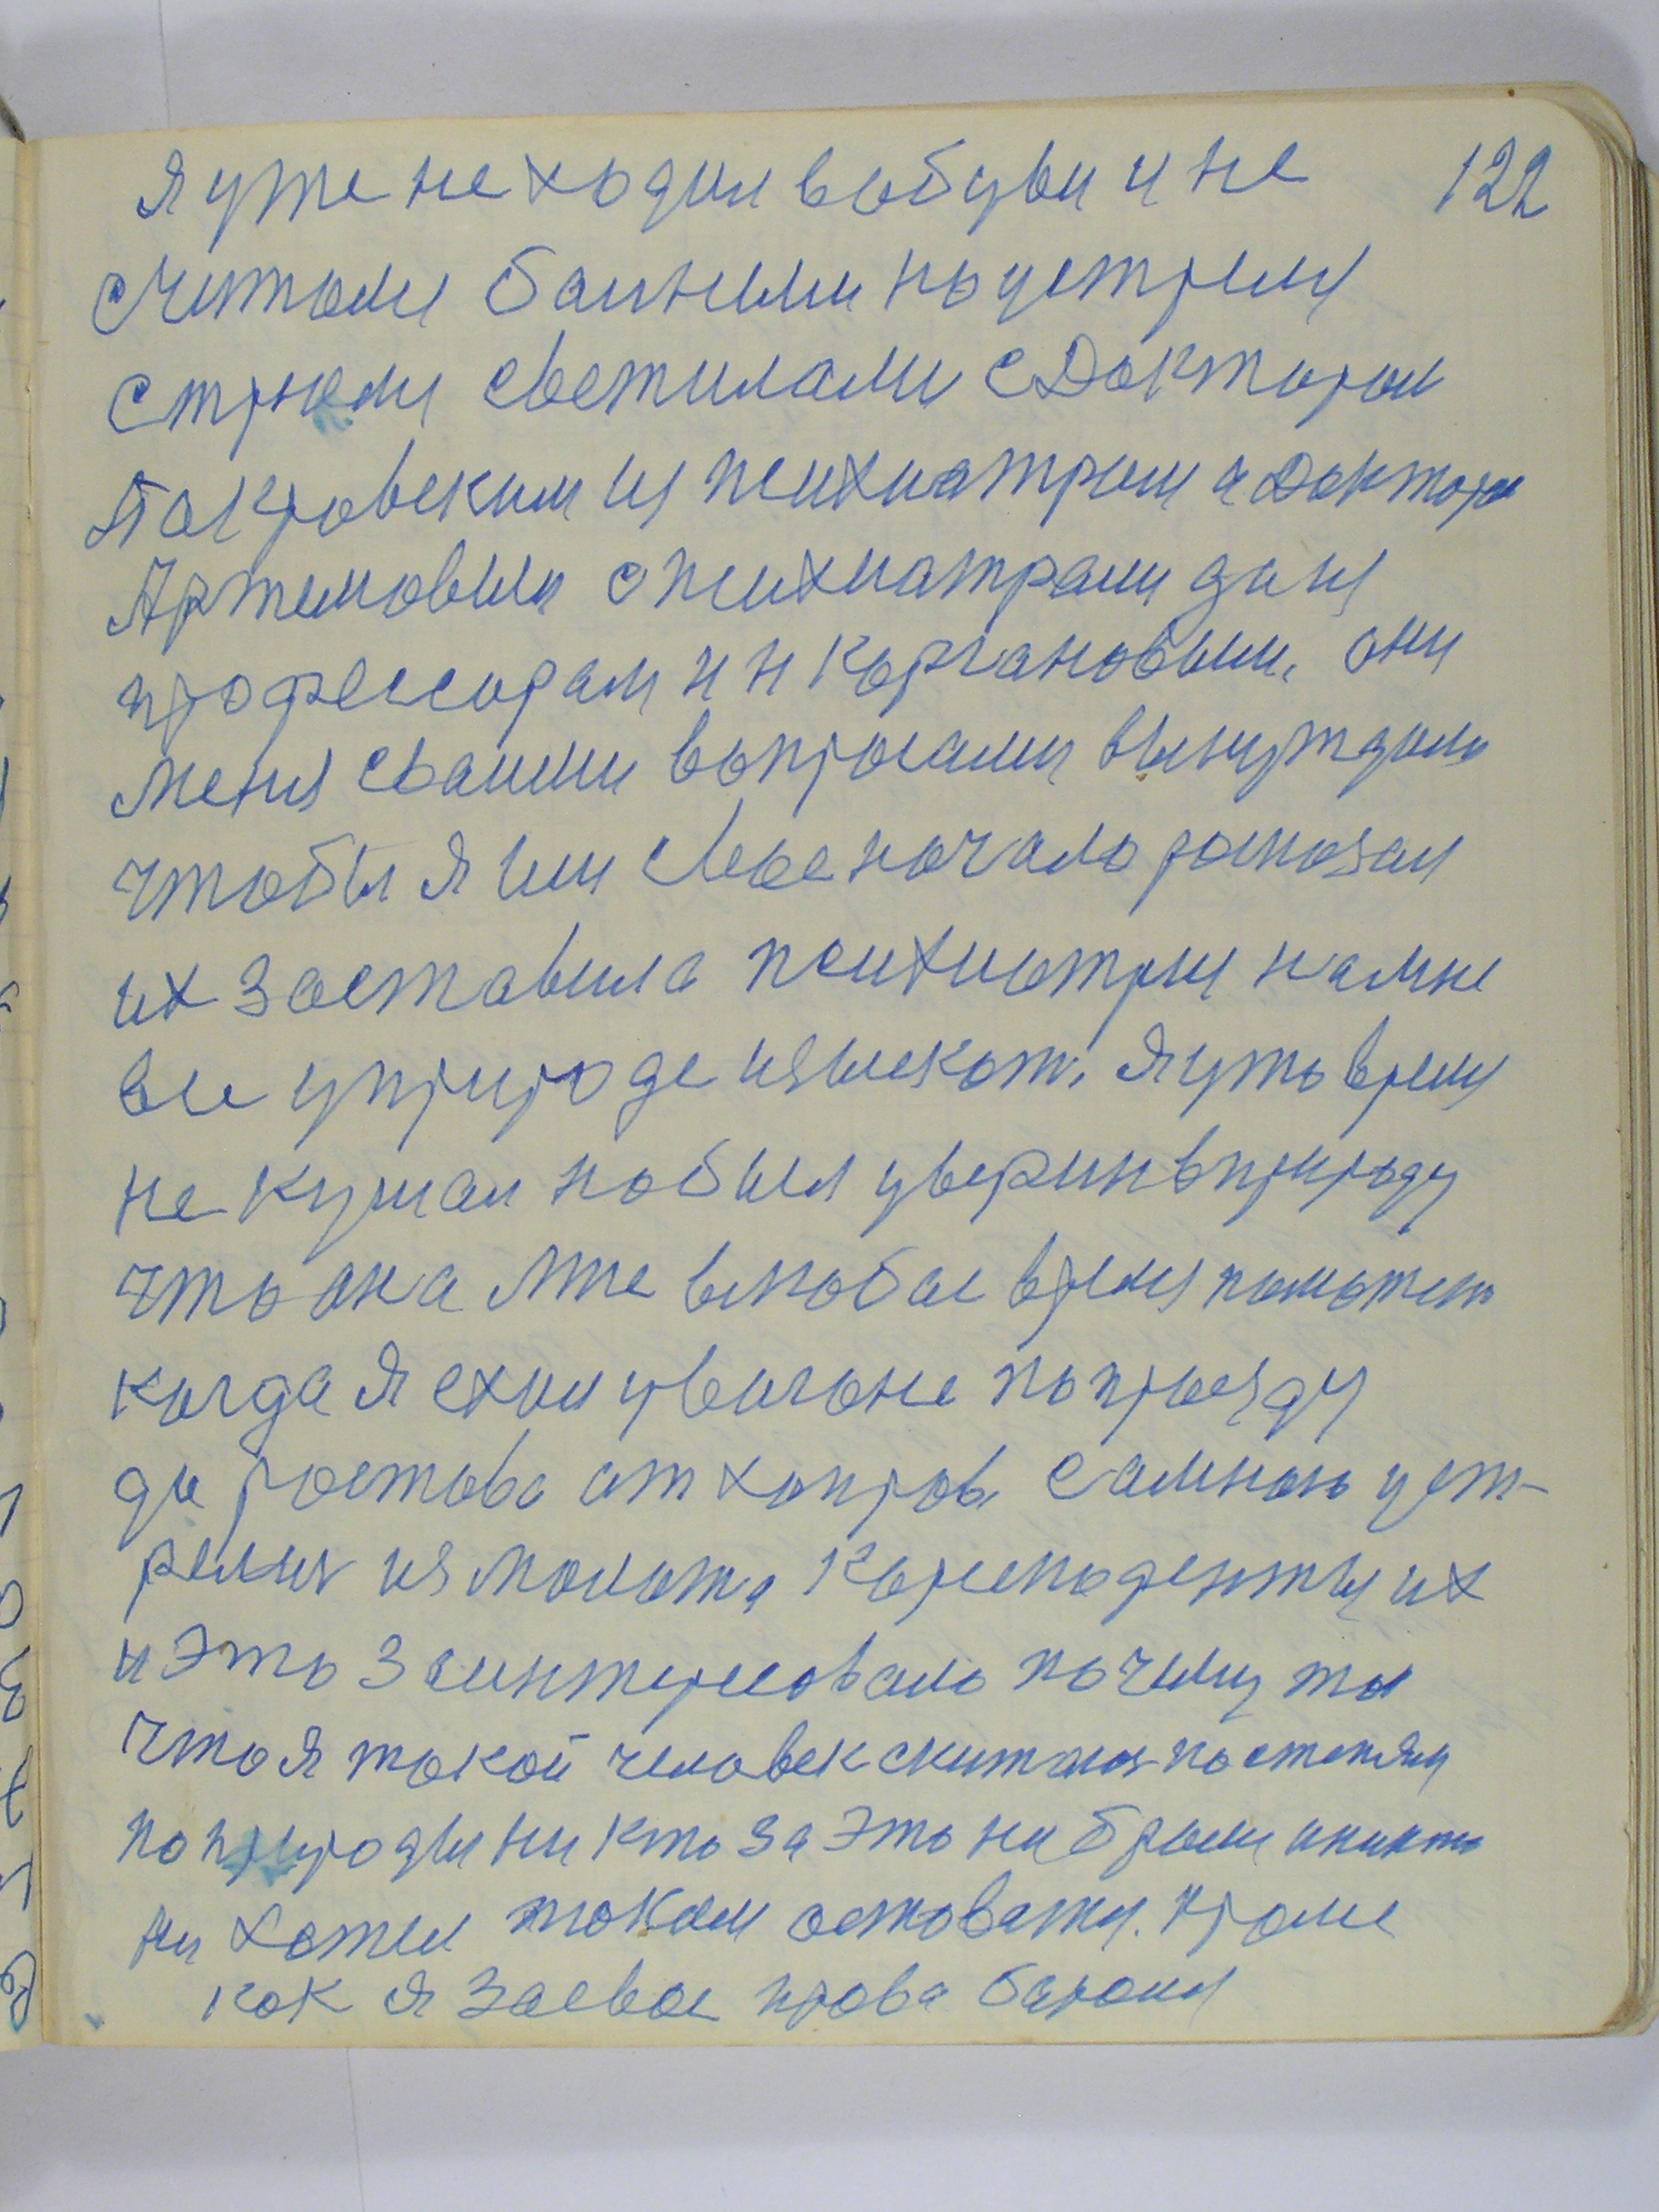 я уже не ходил вобуви и не 122
считали банними но устрели
стрели светилами с Доктором
Покровским из психиатрии и Доктор
Артемовым с психиатрами дали
професорам и н Коргановым, они
меня сваими вопросами вынуждали
чтобы я им свое начало росказал
их заставила психиатрии на мне
все уприроде изыскат. я уто время
не кушал но был уверин вприроду
что она мне влюбое время поможет
когда я ехал увагоне по проезду
до ростова от хопров самною уст-
релис из молота Кореподенты их
и это заинтересовало почему то
что я такой человек скитался постепям
по природи ни кто за это ни брали иникто
ни хотел таким оставатця. Кроме
как я засвое права баролся